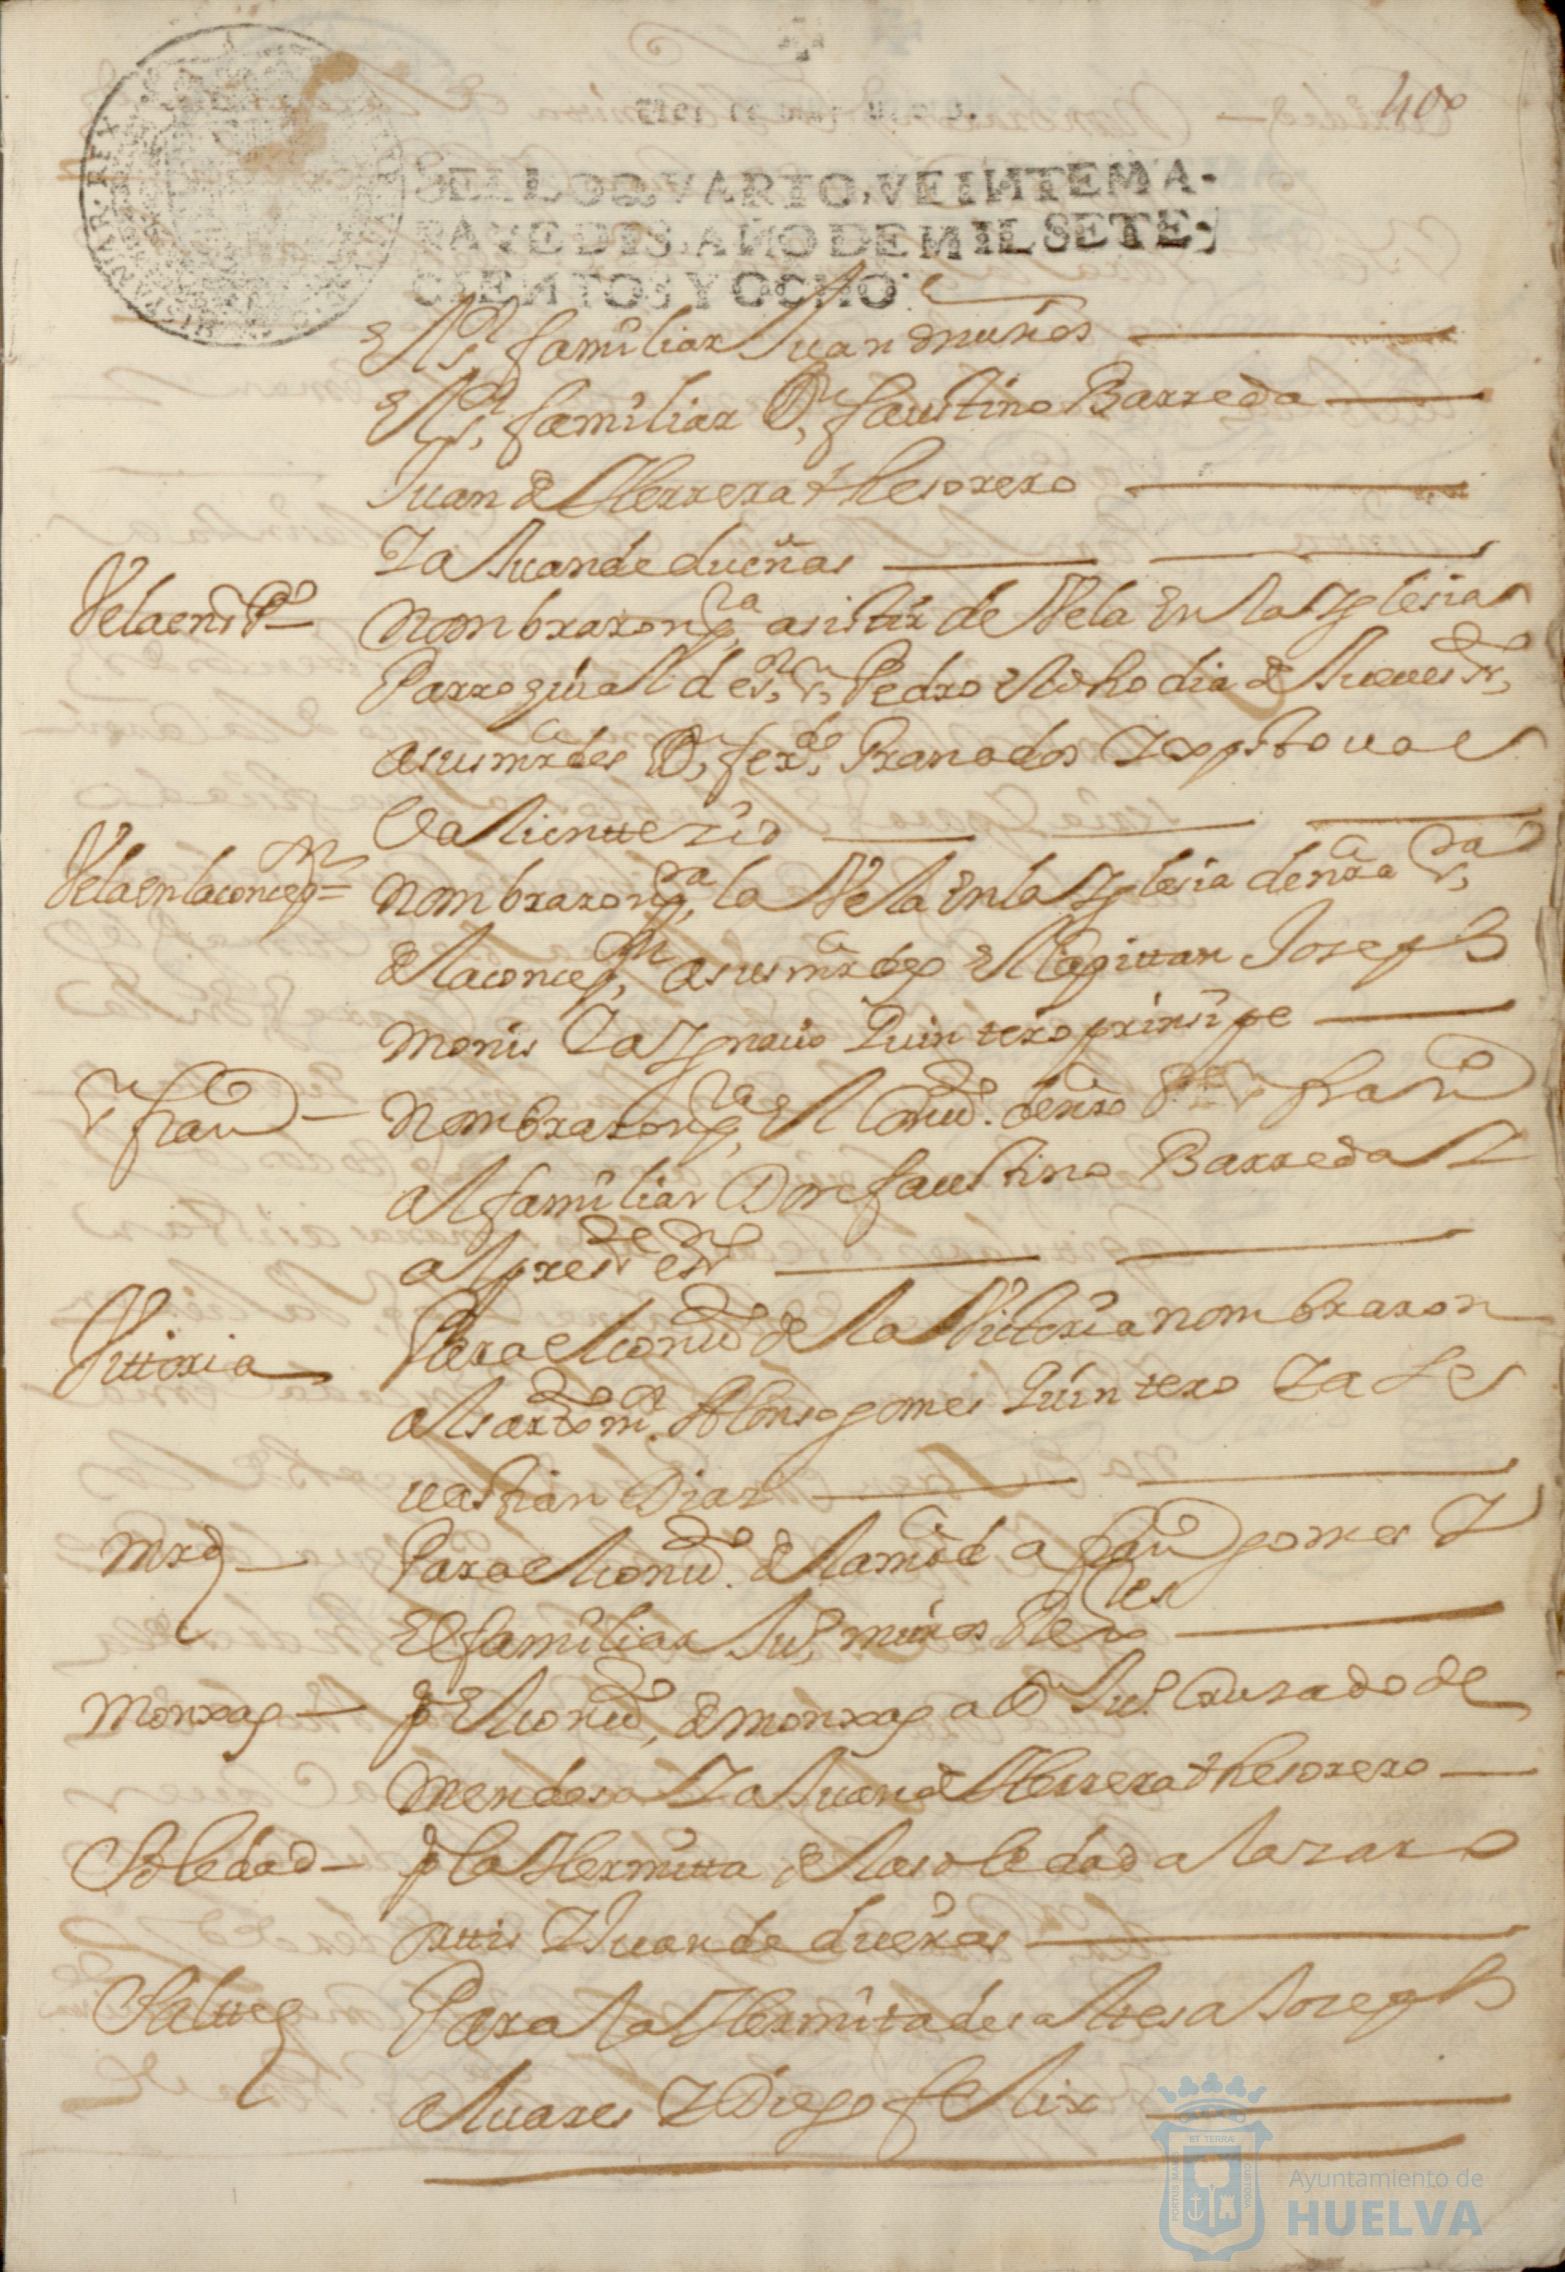 400
SELLO QVARTO, VEINTE MA-
RAVEDIS, AÑO DE MIL SETE-
CIENTOS Y OCHO.
HISPANIAR. REX
El Sr. familiar Juan muños
El Sr. familiar Dn. faustino Barreda
Juan de Herrera thesorero
Ya Juan de dueñas
Vela en S. Po.
nombraron pa. asistir de Vela En la Yglesia
Parroquial de sn. Sn. Pedro dho dia de Jueves sto.
a sus mrdes Dn. ferdo. Granados Y xptoval
Valiente rido
Vela en la concepn.
nombraron pa. la Vela En la Yglesia de nra Sra.
de la concepn. a sus mrdes El Capittan Joseph
monis Ya Ygnacio Quintero prinsipe
S. franco
nombraron pa. El Conuto. de nro Pe. S. franco
al familiar Don faustino Barreda Y
al preste. esno.
Vittoria
Para el conuto. de la Victoria nombraron
al sarto. mr. Alonso gomes Quintero Ya Se
uastian Diaz
Mrd
Para el conuto. de la mrd a franco gomes Y
El familiar Jun. muños
Monxas
p El conuto. de monxas a D Jun. Crusado de
Mendosa Ya Juan de Herrera thesorero
Soledad
p la Hermitta de la soledad a Lazaro
orttis Y Juan de dueñas
Saltte
Para la Hermita de saltes a Joseph
aluares Y Diego felix
PORTUS MARIS ET TERRÆ CUSTODIA
Ayuntamiento de
HUELVA